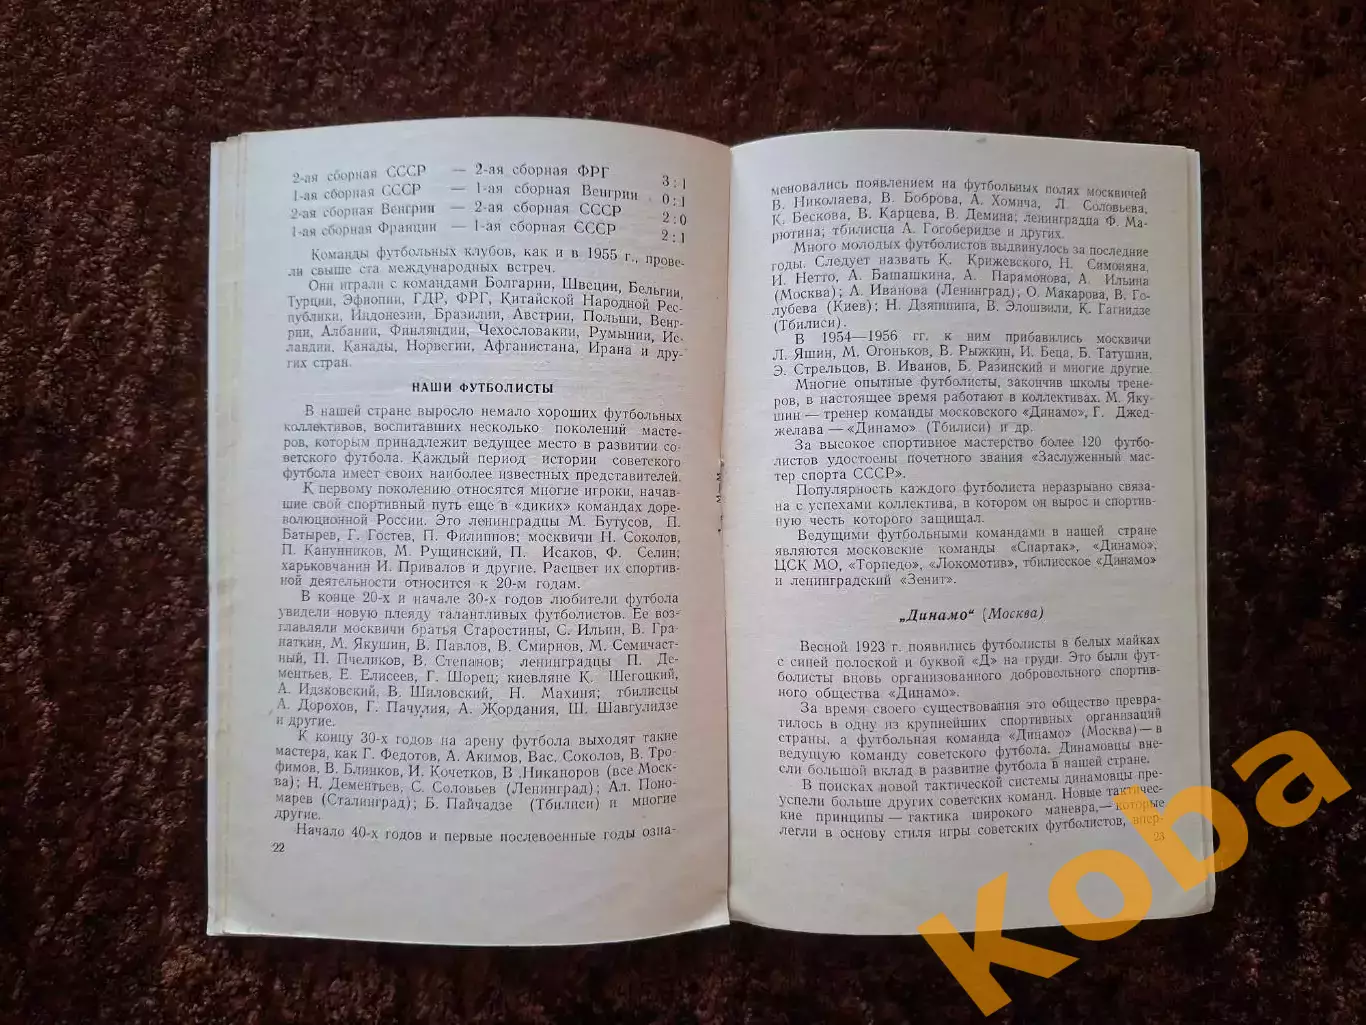 2-ая сборная СССР — 2-ая сборная ФРГ 3:1
1-ая сборная СССР — 1-ая сборная Венгрии 0:1
2-ая сборная Венгрии — 2-ая сборная СССР 2:0
1-ая сборная Франции — 1-ая сборная СССР 2:1
Команды футбольных клубов, как и в 1955 г., прове-
ли свыше ста международных встреч.
Они играли с командами Болгарии, Швеции, Бельгии,
Турции, Эфиопии, ГДР, ФРГ, Китайской Народной Рес-
публики, Индонезии, Бразилии, Австрии, Польши, Венг-
рии, Албании, Финляндии, Чехословакии, Румынии, Ис-
ландии, Канады, Норвегии, Афганистана, Ирана и дру-
гих стран.
НАШИ ФУТБОЛИСТЫ
В нашей стране выросло немало хороших футбольных
коллективов, воспитавших несколько поколений масте-
ров, которым принадлежит ведущее место в развитии со-
ветского футбола. Каждый период истории советского
футбола имеет своих наиболее известных представителей.
К первому поколению относятся многие игроки, начав-
шие свой спортивный путь еще в «диких» командах доре-
волюционной России. Это ленинградцы М. Бутусов, П.
Батырев, Г. Гостев, П. Филиппов; москвичи Н. Соколов,
П. Канунников, М. Рущинский, П. Исаков, Ф. Селин;
харьковчанин И. Привалов и другие. Расцвет их спортив-
ной деятельности относится к 20-м годам.
В конце 20-х и начале 30-х годов любители футбола
увидели новую плеяду талантливых футболистов. Ее воз-
главляли москвичи братья Старостины, С. Ильин, В. Гра-
наткин, М. Якушин, В. Павлов, В. Смирнов, М. Семичаст-
ный, П. Пчеликов, В. Степанов; ленинградцы П. Де-
ментьев, Е. Елисеев, Г. Шорец; киевляне К. Щегоцкий,
А. Идзковский, В. Шиловский, Н. Махиня; тбилисцы
А. Дорохов, Г. Пачулия, А. Жордания, Ш. Шавгулидзе
и другие.
К концу 30-х годов на арену футбола выходят такие
мастера, как Г. Федотов, А. Акимов, Вас. Соколов, В. Тро-
фимов, В. Блинков, И. Кочетков, В. Никаноров (все Моск-
ва); Н. Дементьев, С. Соловьев (Ленинград); Ал. Поно-
марев (Сталинград); Б. Пайчадзе (Тбилиси) и многие
другие.
Начало 40-х годов и первые послевоенные годы озна-
22
меновались появлением на футбольных полях москвичей
В. Николаева, В. Боброва, А. Хомича, Л. Соловьева,
К. Бескова, В. Карцева, В. Демина; ленинградца Ф. Ма-
рютина; тбилисца А. Гогоберидзе и других.
Много молодых футболистов выдвинулось за последние
годы. Следует назвать К. Крижевского, Н. Симоняна,
И. Нетто, А. Башашкина, А. Парамонова, А. Ильина
(Москва); А. Иванова (Ленинград); О. Макарова, В. Го-
лубева (Киев); Н. Дзяпшипа, В. Элошвили, К. Гагнидзе
(Тбилиси).
В 1954—1956 гг. к ним прибавились москвичи
Л. Яшин, М. Огоньков, В. Рыжкин, И. Беца, Б. Татушин,
Э. Стрельцов, В. Иванов, Б. Разинский и многие другие.
Многие опытные футболисты, закончив школы трене-
ров, в настоящее время работают в коллективах. М. Яку-
шин — тренер команды московского «Динамо», Г. Джед-
желава — «Динамо» (Тбилиси) и др.
За высокое спортивное мастерство более 120 футбо-
листов удостоены почетного звания «Заслуженный мас-
тер спорта СССР».
Популярность каждого футболиста неразрывно связа-
на с успехами коллектива, в котором он вырос и спортив-
ную честь которого защищал.
Ведущими футбольными командами в нашей стране
являются московские команды «Спартак», «Динамо»,
ЦСК МО, «Торпедо», «Локомотив», тбилисское «Динамо»
и ленинградский «Зенит».
„Динамо“ (Москва)
Весной 1923 г. появились футболисты в белых майках
с синей полоской и буквой «Д» на груди. Это были фут-
болисты вновь организованного добровольного спортив-
ного общества «Динамо».
За время своего существования это общество превра-
тилось в одну из крупнейших спортивных организаций
страны, а футбольная команда «Динамо» (Москва) — в
ведущую команду советского футбола. Динамовцы вне-
сли большой вклад в развитие футбола в нашей стране.
В поисках новой тактической системы динамовцы пре-
успели больше других советских команд. Новые тактичес-
кие принципы — тактика широкого маневра, — которые
легли в основу стиля игры советских футболистов, впер-
23
Коба